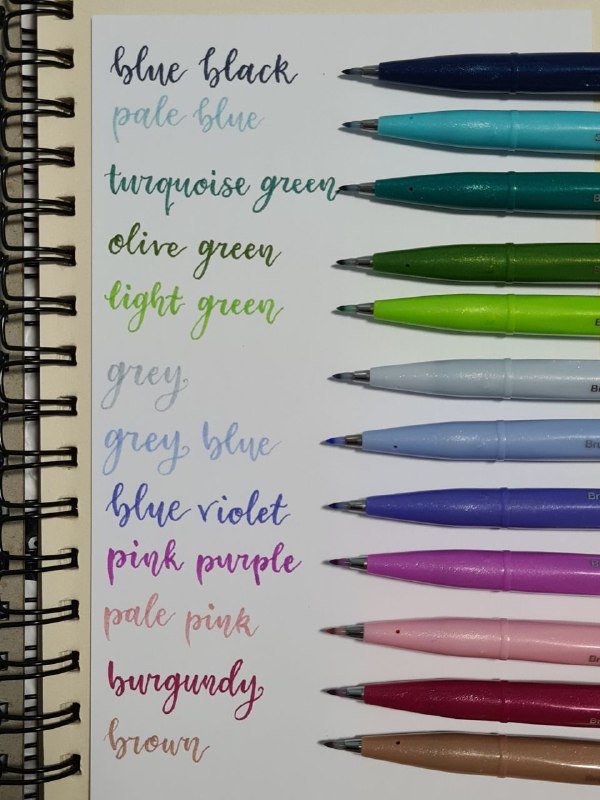 blue black
pale blue
turquoise green
olive green
light green
grey
grey blue
blue violet
pink purple
pale pink
burgundy
brown